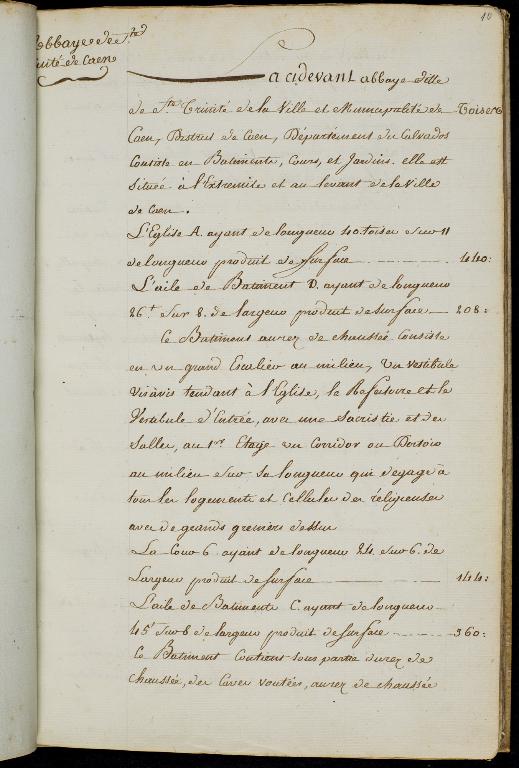 10
Abbaye de Ste
Trinité de Caen
La cidevant abbaye d'ille
de Ste Trinité de la Ville et Municipalité de Toises
Caen, District de Caen, Département du Calvados
Consiste en Batiments, Cours, et Jardins. elle est
Située à l'Extremité et au levant de la Ville
de Caen.
L'Eglise A. ayant de longueur 40. toises sur 11
de longueur produit de surface 440:
L'aile de Batiment D. ayant de longueur
26.t sur 8. de largeur produit de surface 208:
Ce Batiment au rez de chaussée Consiste
en un grand Escalier au milieu, un vestibule
vis àvis tendant à l'Eglise, le Refectoire et le
Vestibule d'Entrée, avec une Sacristie et des
Salles, au 1er Etage un Corridor ou Dortoir
au milieu sur sa longueur qui degage à
tous les logements et Cellules des réligieuses
avec de grands greniers dessus
La Cour 6. ayant de longueur 24 sur 6. de
Largeur produit de surface 144:
L'aile de Batiments C. ayant de longueur
45t sur 8 de largeur produit de surface 360:
Ce Batiment Contient sous partie du rez de
chaussée, des Caves voutées, au rez de chaussée